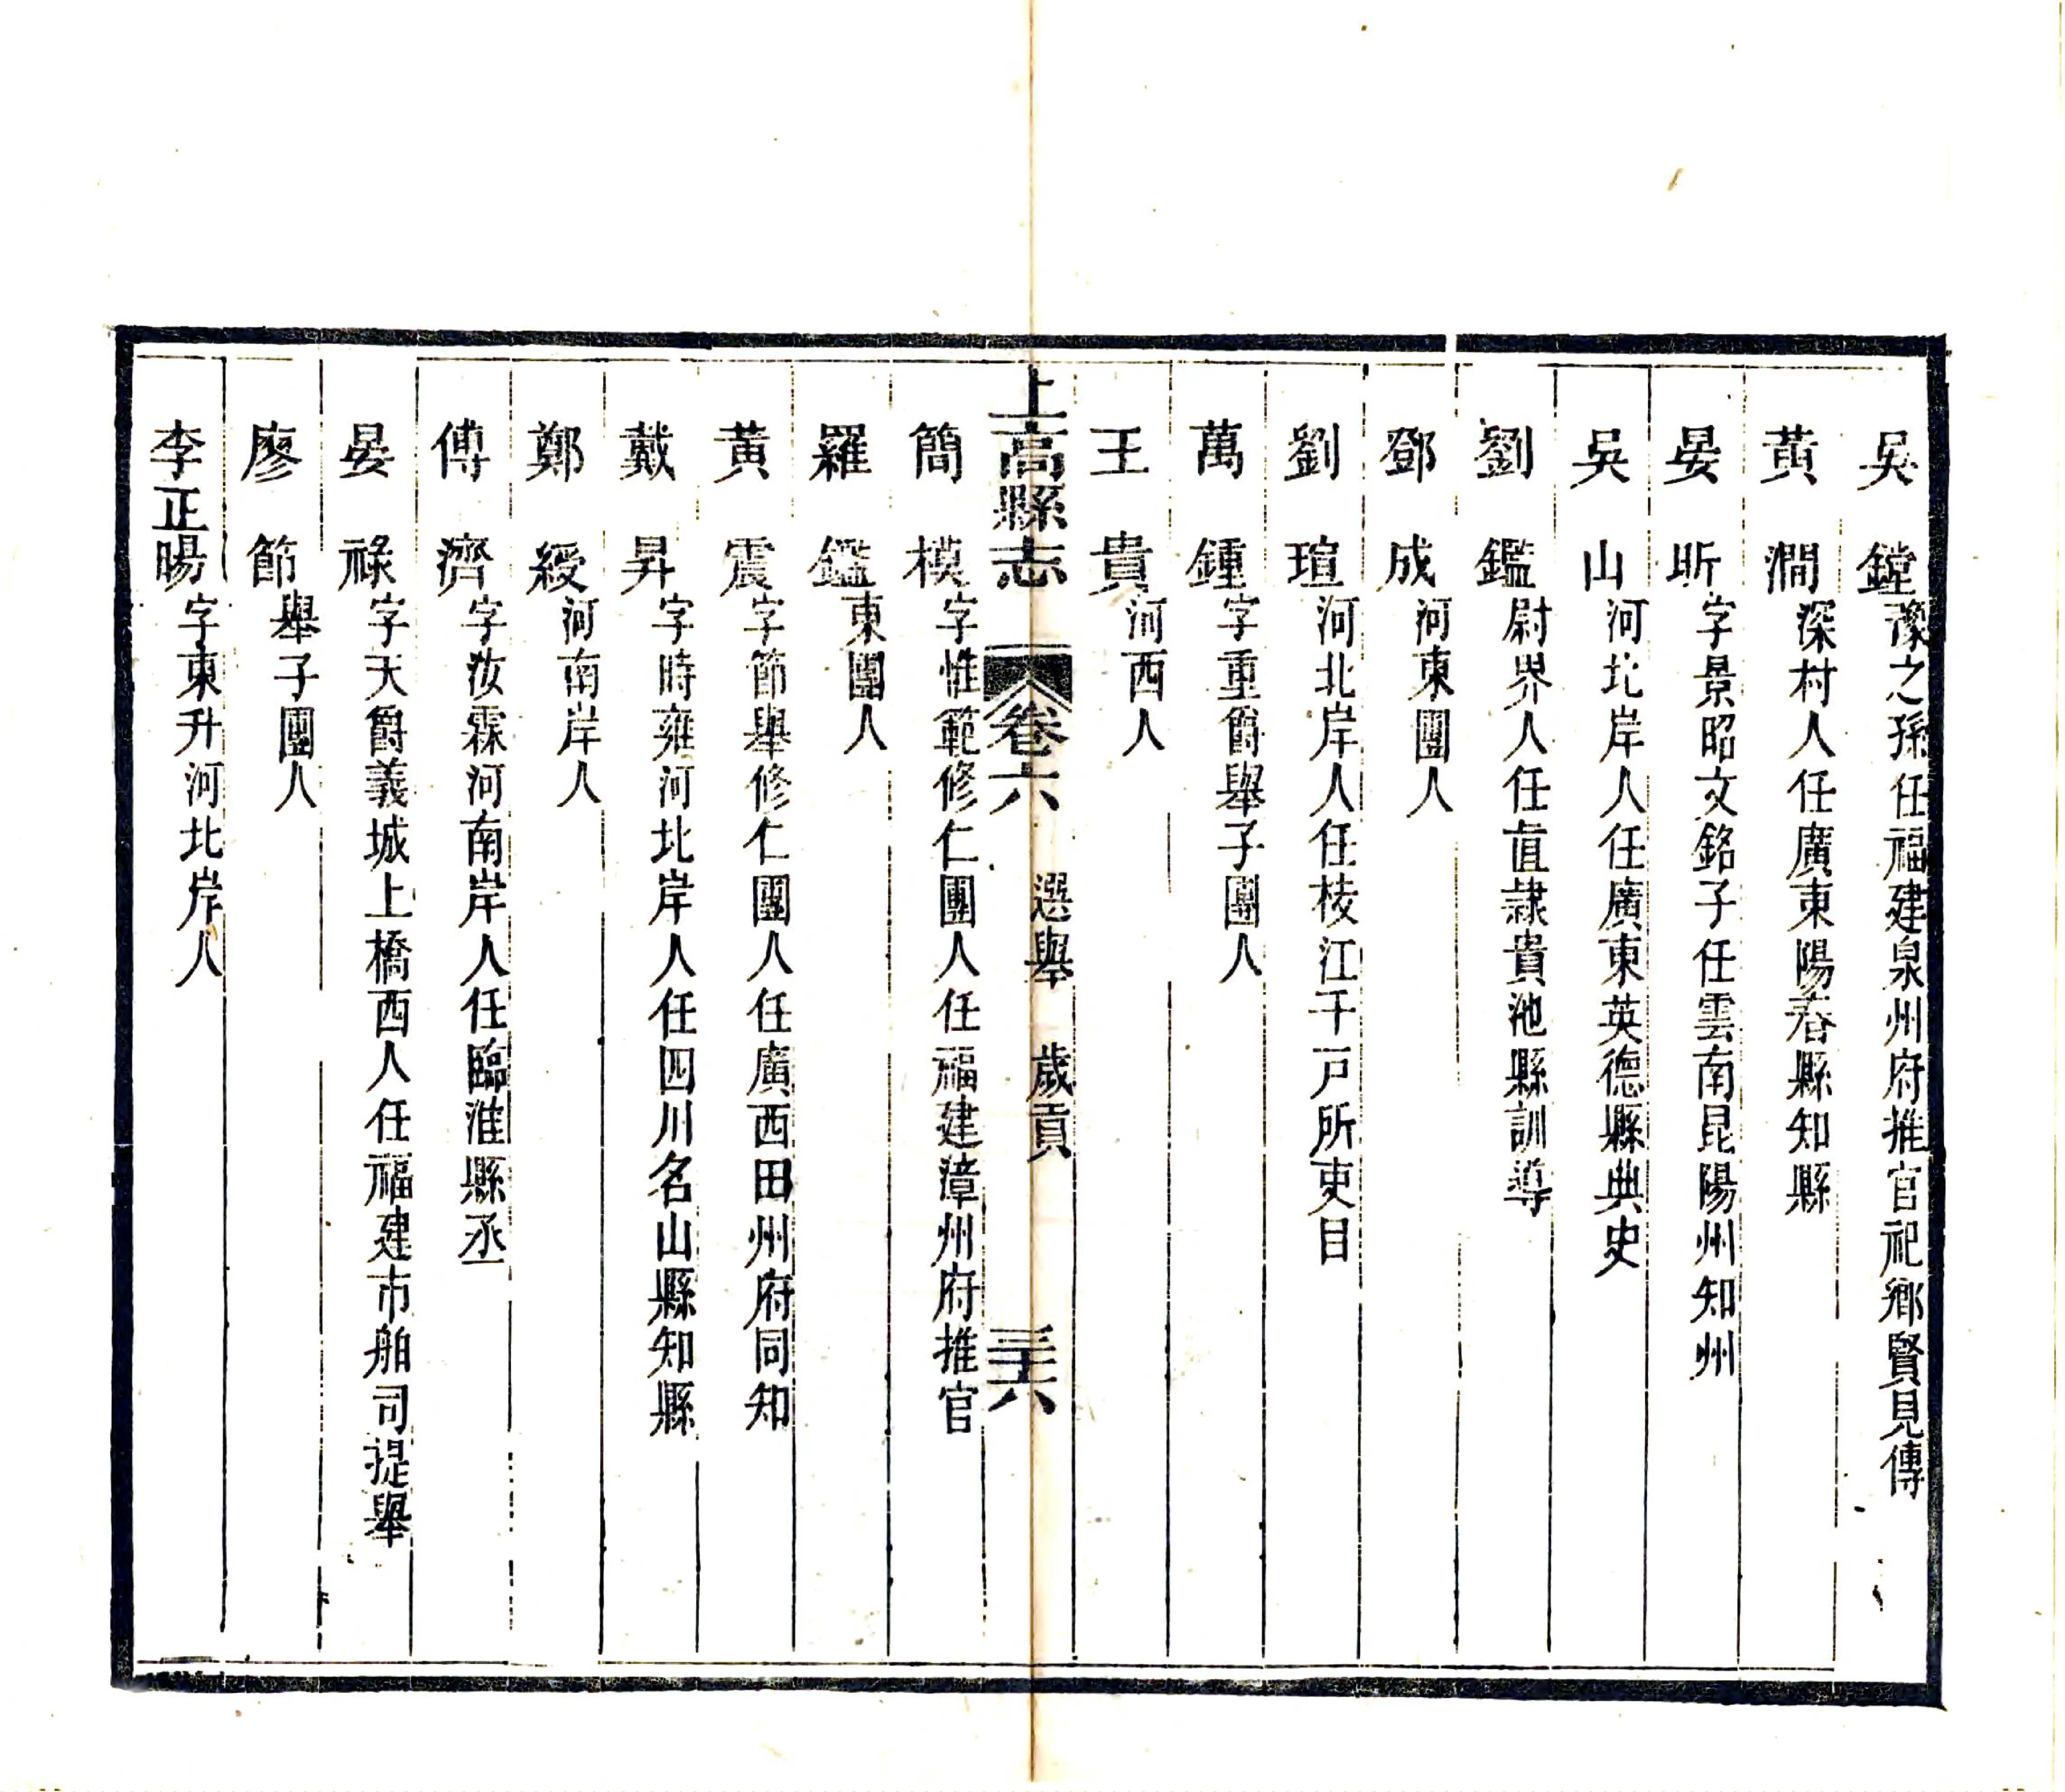 吳鏜豫之孫任福建泉州府推官祀鄉賢見傳
黃澗深村人任廣東陽春縣知縣
晏昕字景昭文銘子任雲南昆陽州知州
吳山河北岸人任廣東英德縣典史
劉鑑尉界人任直隷貴池縣訓導
鄧成河東團人
劉瑄河北岸人任枝江千戸所吏目
萬鍾字重爵舉子團人
王貴河西人
上高縣志 卷六 選舉 歲貢 三十六
簡模字惟範修仁團人任福建漳州府推官
羅鑑東團人
黃震字節舉修仁團人任廣西田州府同知
戴昇字時雍河北岸人任四川名山縣知縣
鄭綬河南岸人
傅濟字汝霖河南岸人任臨淮縣丞
晏祿字天爵義城上橋西人任福建市舶司提舉
廖節舉子團人
李正暘字東升河北岸人